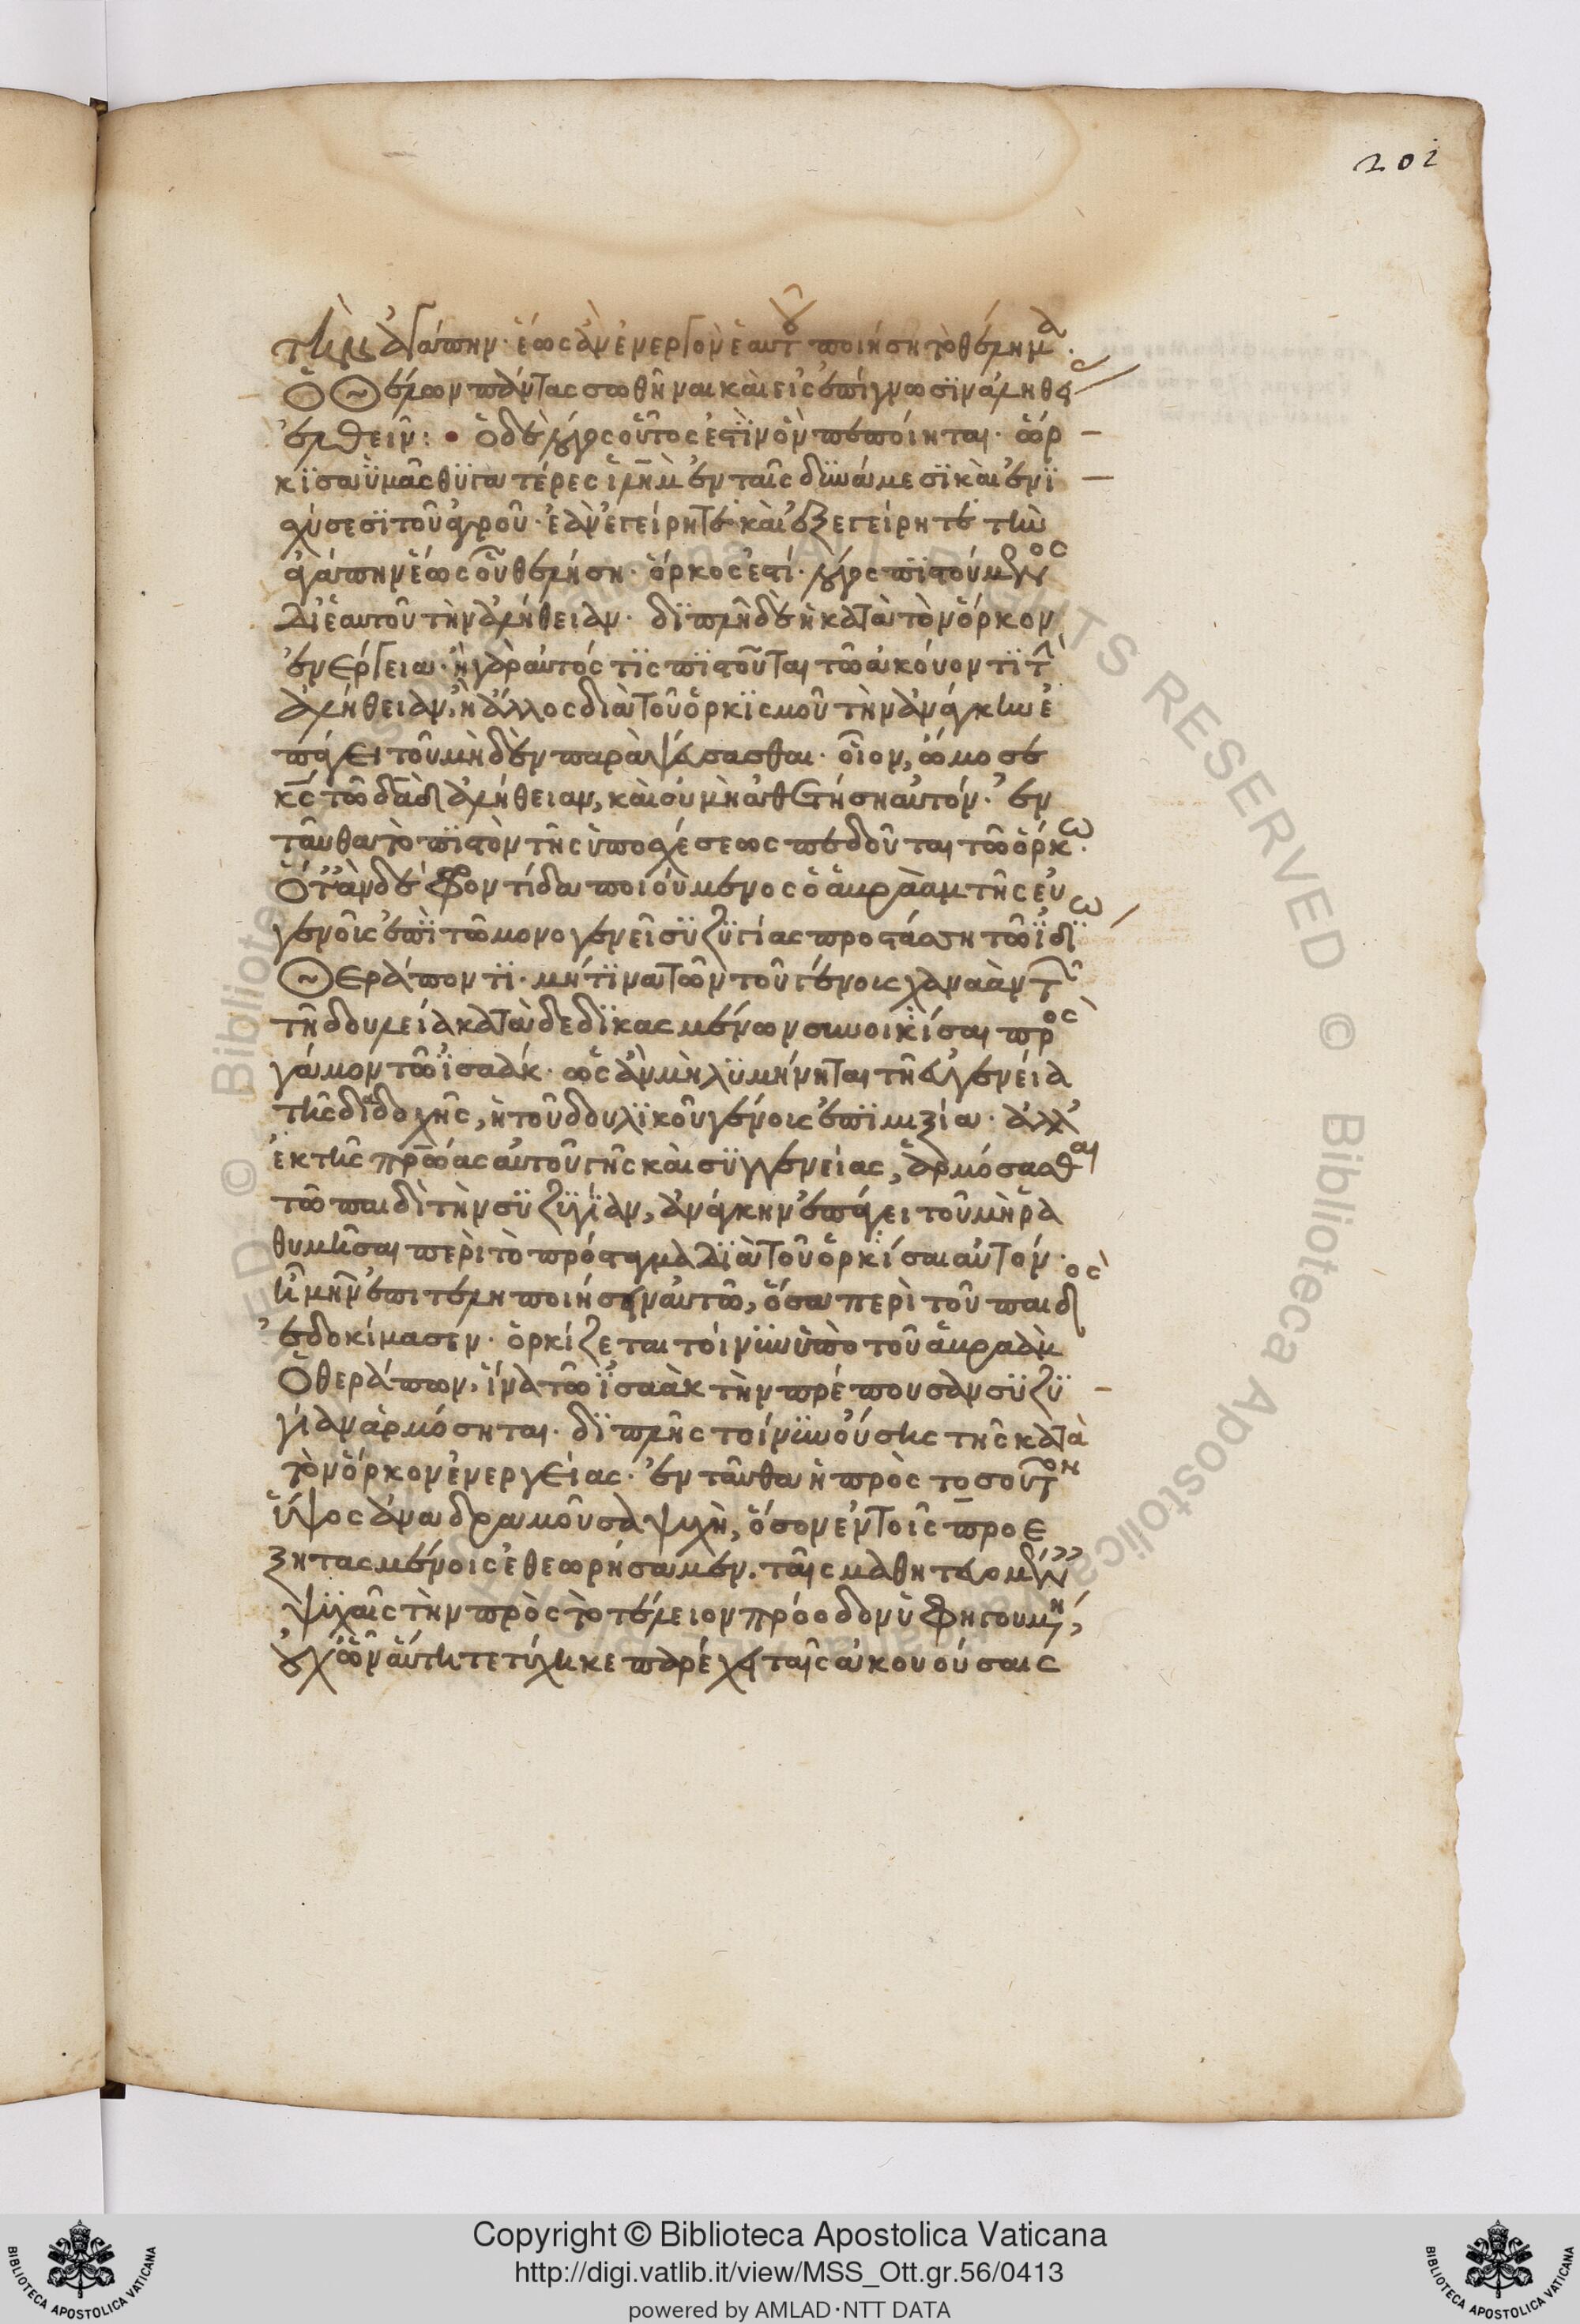 202
τὴν ἀγάπην· ἕως ἂν ἐνεργὸν ἑαυτοῦ ποιήση τὸ θέλημα.
Ὁ θέλων πάντας σωθῆναι καὶ εἰς ἐπίγνωσϊν ἀληθείας
ἐλθεῖν: • ὁ δὲ λόγος οὗτος ἐστϊν ὃν πεποίηται· ὥρ
κϊσα ὑμᾶς θϋγατέρες ἱλὴμ ἐν ταῖς δϋνάμεσϊ καὶ ἐν ϊ
σχύσεσϊ τοῦ ἀγροῦ· ἐὰν ἐγείρητε καὶ ἐξεγείρητε τὴν
ἀγάπην ἕως οὗ θελήση· ὅρκος ἐστί· λόγος πϊστούμενος
δι ἑαυτοῦ τὴν ἀλήθειαν· δϊπλῆ δὲ ἡ κατὰ τὸν ὅρκον
ἐνέργεια· ἢ γὰρ αὐτός τϊς πϊστοῦται τῶ ἀκούοντϊ τὴν
ἀλήθειαν, ἢ ἄλλος διὰ τοῦ ὁρκϊσμοῦ τὴν ἀνάγκην ἐ
πάγει τοῦ μὴ δὲν παραψεύσασθαι· οἷον, ὤμοσε
κς τῶ δαδ ἀλήθειαν, καὶ οὐ μὴ ἀθετήση αὐτόν· ἐν
ταῦθα τὸ πϊστὸν τῆς ὑποσχέσεως πεδοῦται τῶ ὅρκω.
Ὅτ' ἂν δὲ φροντίδα ποιούμενος ὁ ἁβραὰμ τῆς εὐ
γενοῖς ἐπϊ τῶ μονογενεῖ σϋζϋγίας προστάσση τῶ ϊδϊω
θεράποντϊ· μήτϊνα τῶν τοῦ γένοις χαναὰν τῶν
τῆ δουλεία καταδεδϊκασμένων συνοικίσαι πρὸς
γάμον τῶ ϊσαάκ· ὡς ἂν μὴ λϋμήνηται τῆ εὐγενεία
τῆς διαδοχῆς, ἡ τοῦ δουλϊκοῦ γένοις ἐπϊμιξία· ἀλλ'
ἐκ τῆς πρώας αὐτοῦ γῆς καὶ σϋγγενείας, ἁρμόσασθαι
τῶ παιδὶ τὴν σϋζϋγϊαν, ἀνάγκην ἐπάγει τοῦ μὴ ῥα
θυμῆσαι περὶ τὸ πρόσταγμα δϊὰ τοῦ ὁρκίσαι αὐτόν·
ἦ μὴν ἐπιτελῆ ποιήσειν αὐτῶ, ὅσα περὶ τοῦ παιδὸς
ἐδοκίμασεν· ὁρκίζεται τοίνϋν ὑπὸ τοῦ ἁβραὰμ
Ὁ θεράπων, ἵνα τῶ ϊσαὰκ τὴν πρέπουσαν σϋζϋ
γίαν ἁρμόσηται· δϊπλῆς τοίνϋν οὔσης τῆς κατὰ
τὸν ὅρκον ἐνεργείας· ἐν ταῦθα ἡ πρὸς τοσοῦτον
ὕψος ἀναδραμοῦσα ψυχὴ, ὅσον ἐν τοῖς προε
ξητασμένοις ἐθεωρήσαμεν· ταῖς μαθητευομέναις
ψϋχαῖς τὴν πρὸς τὸ τέλειον πρόοδον ὑφηγουμένη,
οὐχ ὧν αὕτη τετύχηκε παρέχει ταῖς ἀκουούσαις
Copyright © Biblioteca Apostolica Vaticana
http://digi.vatlib.it/view/MSS_Ott.gr.56/0413
powered by AMLAD·NTT DATA